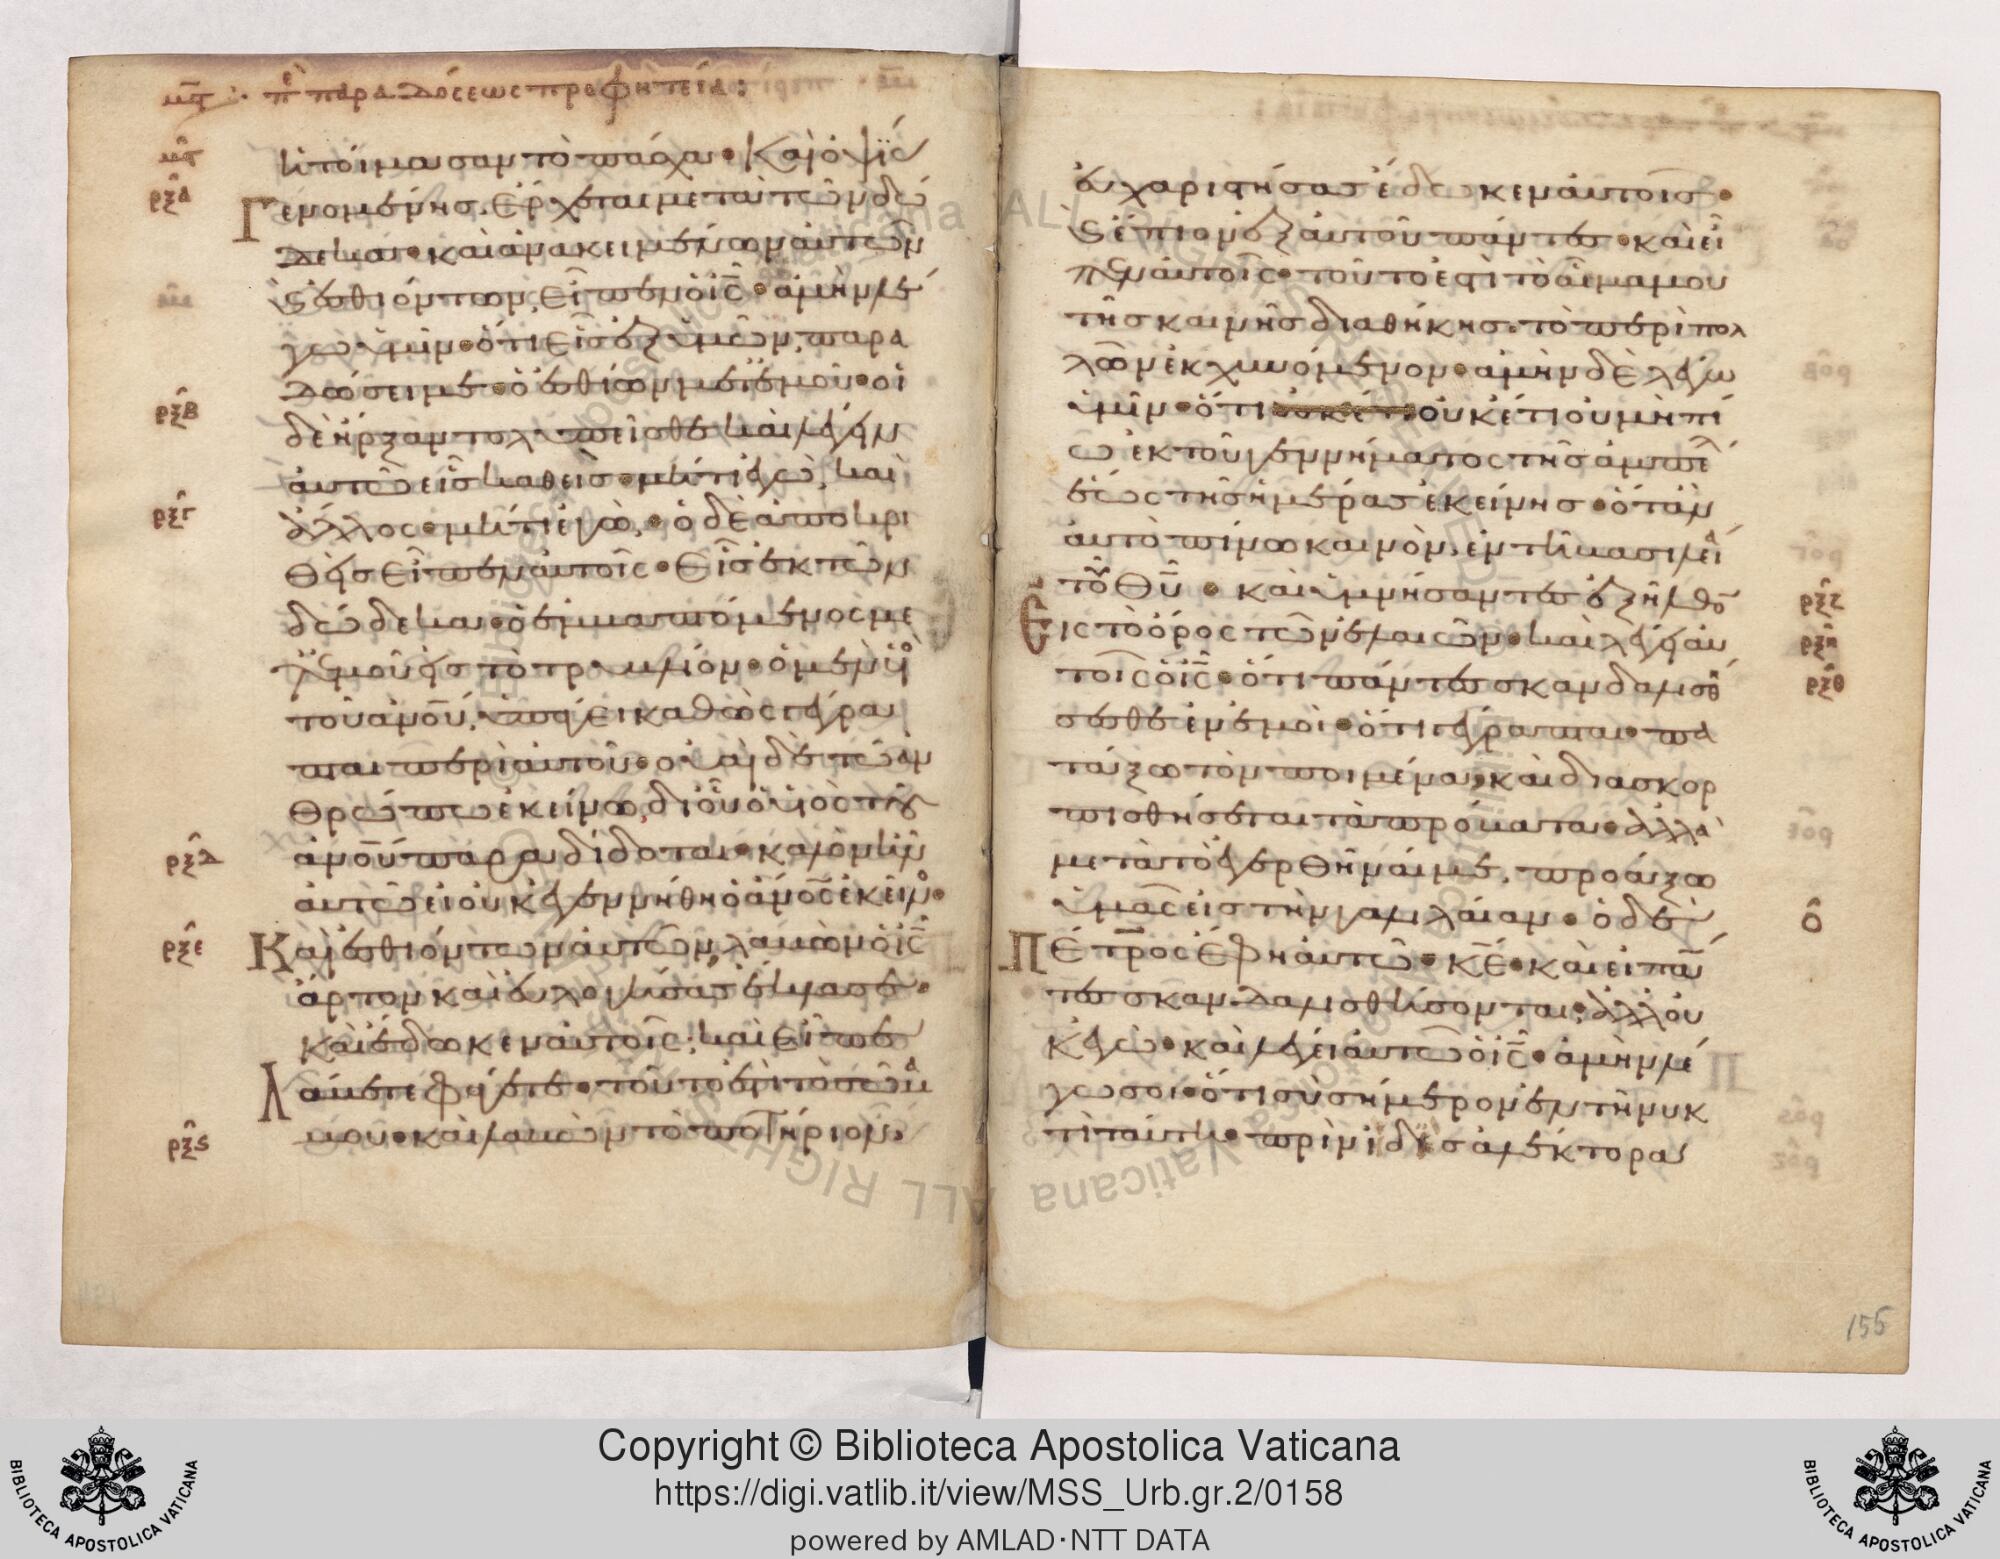 μϛ π παραδόσεως προφητεία:
μϛ
ἡτοίμασαν τὸ πάσχα· καὶ ὀψίας
ρξα
Γενομένης, ἔρχεται μετὰ τῶν δώ
δεκα· καὶ ἀνακειμένων αὐτῶν
ϛ ἐσθιόντων, εἶπεν ὁ ι̅ς̅· ἀμὴν λέ
γω ὑμῖν· ὅτι εἷς ἐξ ὑμῶν, παρα
δώσει με· ὁ ἐσθίων μετ' ἐμοῦ· οἱ
ρξβ
δὲ ἤρξαντο λυπεῖσθε καὶ λέγειν
αὐτῶ εἷς καθεῖς· μήτι ἐγὼ, καὶ
ρξγ
ἄλλος· μήτι ἐγὼ,· ὁ δὲ ἀποκρι
θεὶς εἶπεν αὐτοῖς· εἷς ἐκ τῶν
δώδεκα· ὁ ἐμβαπτόμενος με
τ' ἐμοῦ εἰς τὸ τρυβλίον· ὁ μὲν υἱὸ
τοῦ ἀν̅ου̅, ὑπάγει καθὼς γέγρα
πται περὶ αὐτοῦ· οὐαὶ δὲ τῶ ἀν
θρώπω ἐκείνω, δι' οὗ ὁ υἱὸς τοῦ
ρξδ
ἀν̅ου̅ παραδίδοται· καλὸν ἦν
αὐτῶ εἰ οὐκ ἐγεννήθη ὁ ἀν̅ος̅ ἐκεῖν·
ρξε
Καὶ ἐσθιόντων αὐτῶν, λαβὼν ὁ ι̅ς̅
ἄρτον καὶ εὐλογήσας ἔκλασε·
καὶ ἔδωκεν αὐτοῖς, καὶ εἶπε
Λάβετε φάγετε· τοῦτό ἐστι τὸ σῶμα
ρξϛ
μου· καὶ λαβὼν τὸ ποτήριον,
εὐχαριστήσας ἔδωκεν αὐτοῖς·
ϛ ἔπιον ἐξ αὐτοῦ πάντες· καὶ εἶ
πεν αὐτοῖς· τοῦτο ἐστὶ τὸ αἷμα μου
τῆς καινῆς διαθήκης· τὸ περὶ πολ
λῶν ἐκχυνόμενον· ἀμὴν δὲ λέγω
ὑμῖν· ὅτι οὐκέτι οὐκέτι οὐ μὴ πί
ω ἐκ τοῦ γεννήματος τῆς ἀμπέλ
ἕως τῆς ἡμέρας ἐκείνης· ὅταν
αὐτὸ πίνω καινὸν, ἐν τῆ βασιλεί
ρξζ
τοῦ θ̅υ̅· καὶ ὑμνήσαντες ἐξῆλθο
ρξη
Εἰς τὸ ὄρος τῶν ἐλαιῶν· καὶ λέγει αὐ
ρξθ
τοῖς ὁ ι̅ς̅· ὅτι πάντες σκανδαλισθή
σεσθε ἐν ἐμοὶ· ὅτι γέγραπται· πα
τάξω τὸν ποιμένα, καὶ διασκορ
πισθήσεται τὰ πρόβατα· ἀλλὰ
μετὰ τὸ ἐγερθῆναί με, προάξω
ο
ὑμᾶς εἰς τὴν γαλιλαίαν· ὁ δὲ
Πέτρος ἔφη αὐτῶ· κ̅ε̅· καὶ εἰ πάν
τες σκανδαλισθήσονται, ἀλλ' οὐ
κ ἐγὼ· καὶ λέγει αὐτῶ ὁ ι̅ς̅· ἀμὴν λέ
γω σοι· ὅτι σὺ σήμερον ἐν τῆ νυκ
τὶ ταύτη· πρὶν ἢ δὶς ἀλέκτορα
155
Copyright © Biblioteca Apostolica Vaticana
https://digi.vatlib.it/view/MSS_Urb.gr.2/0158
powered by AMLAD·NTT DATA
BIBLIOTECA APOSTOLICA VATICANA
BIBLIOTECA APOSTOLICA VATICANA